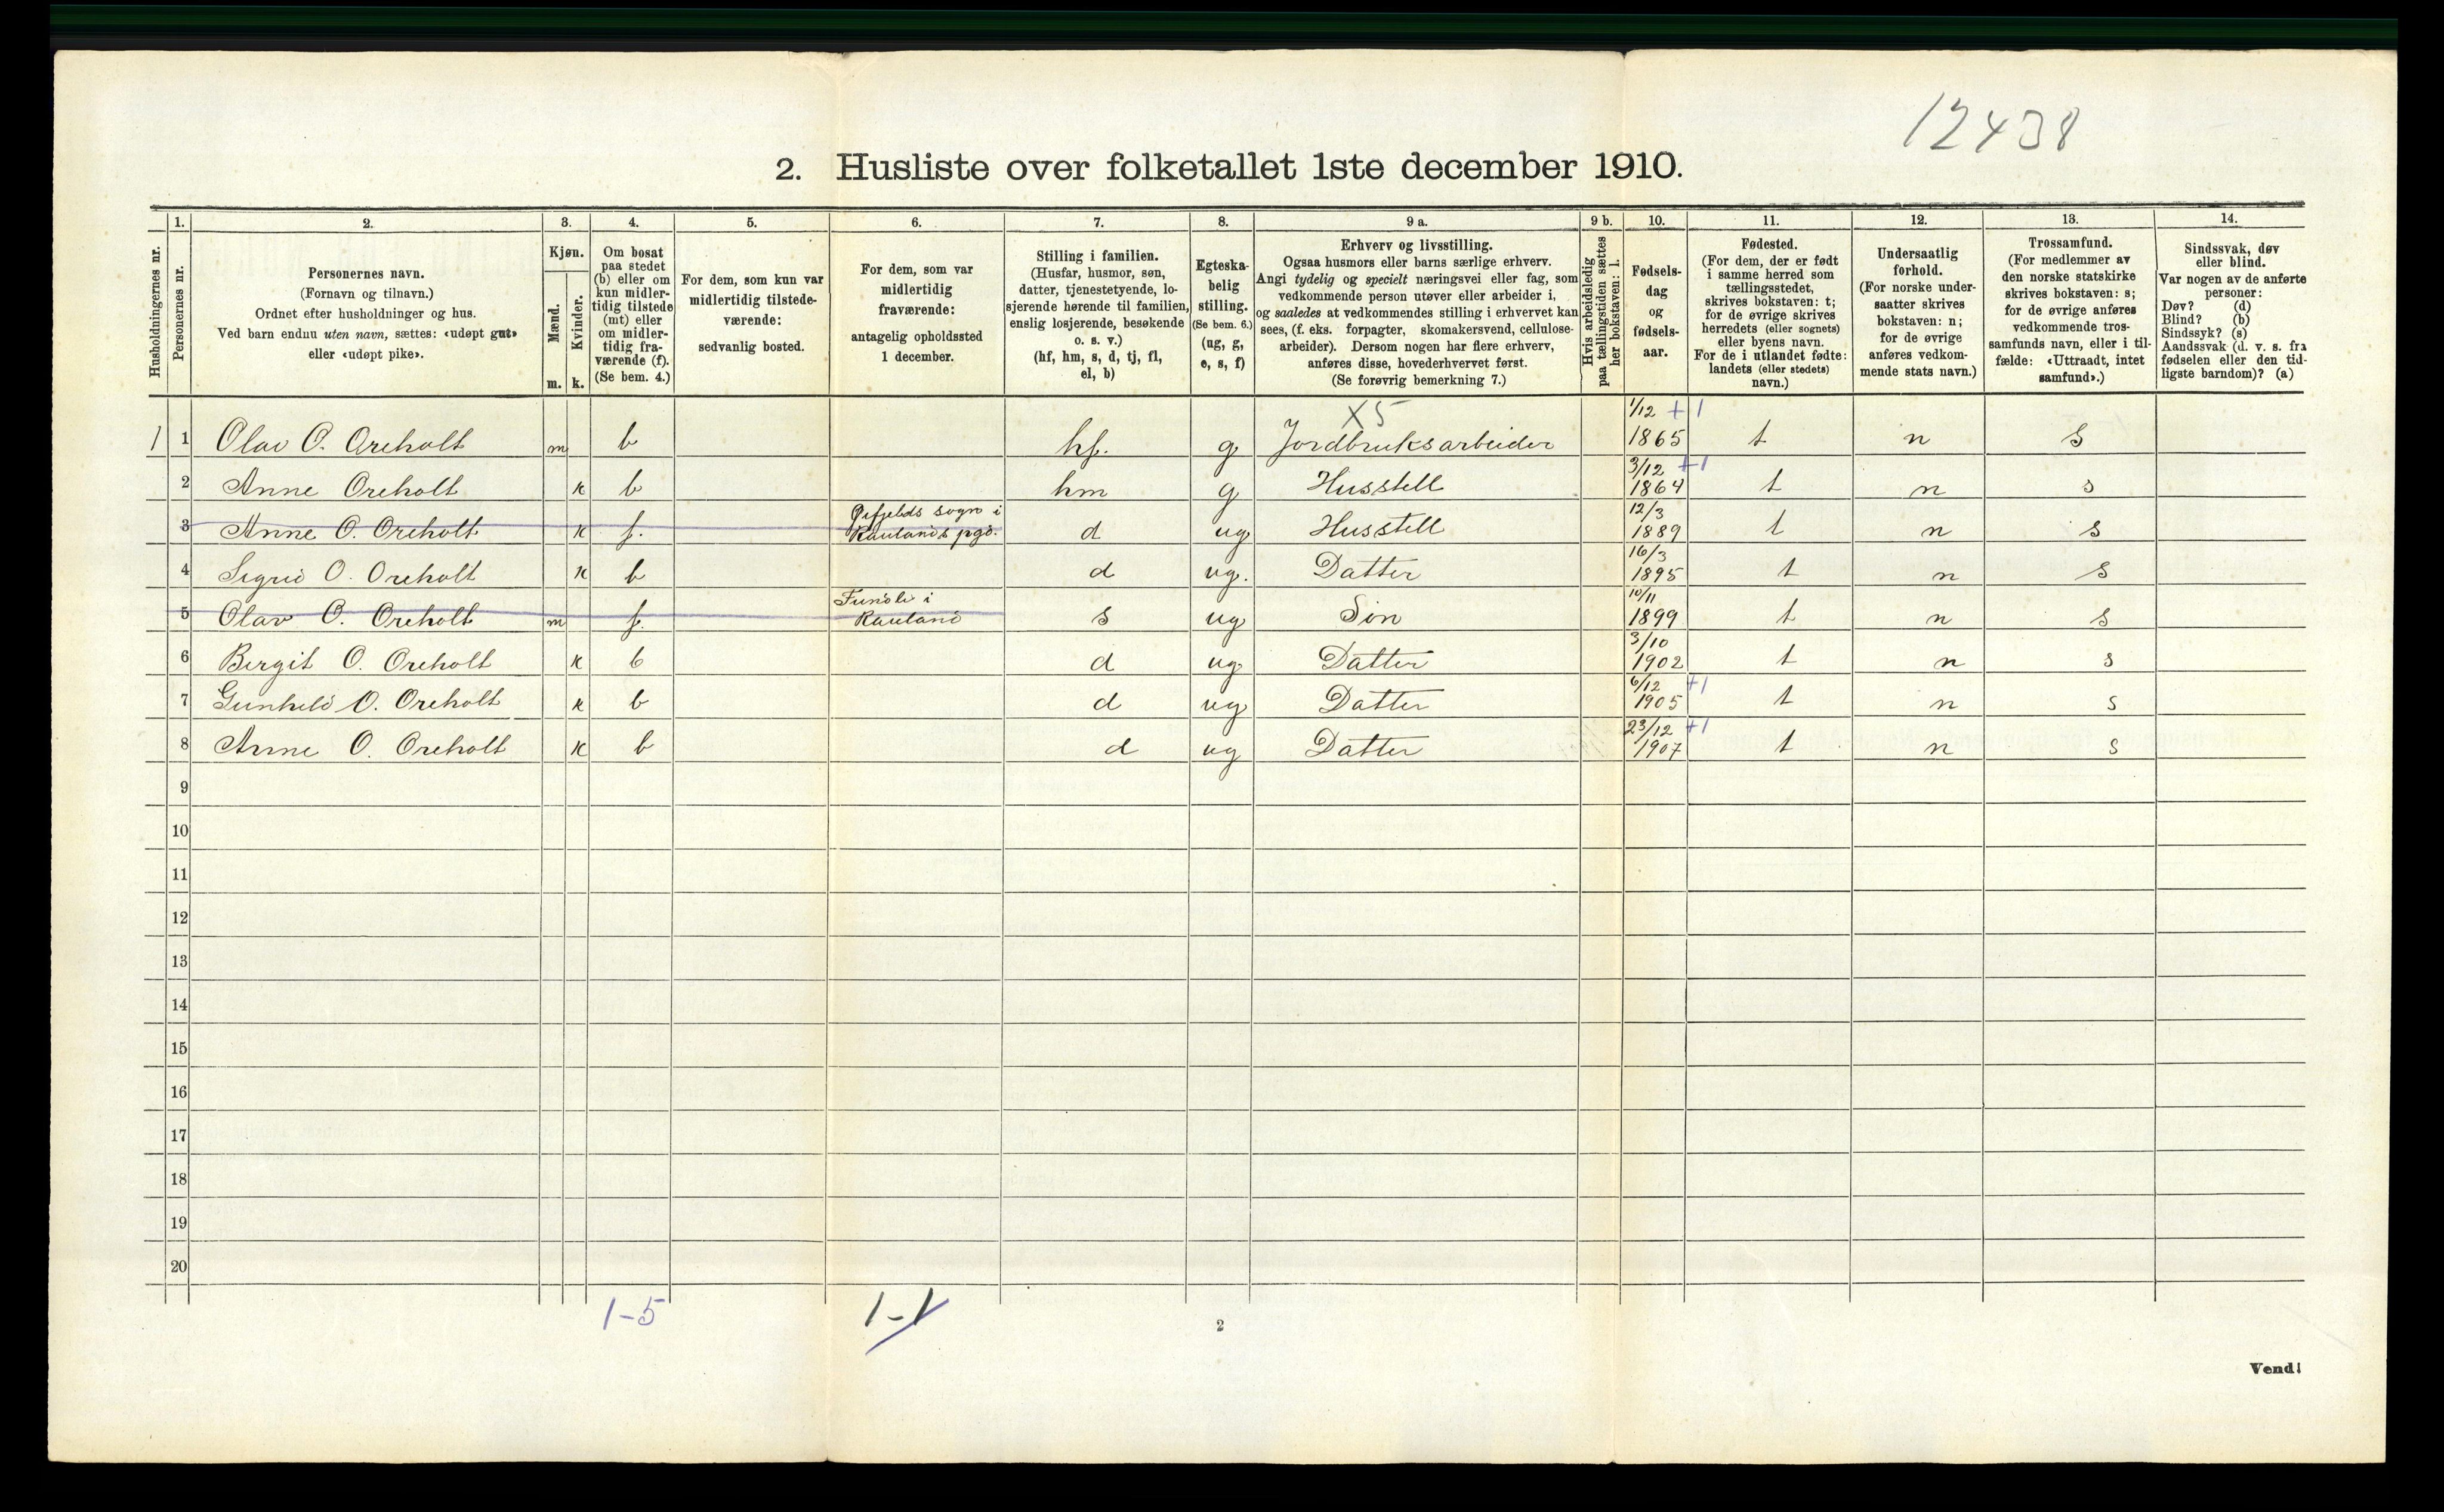 12438
2. Husliste over folketallet 1ste december 1910.
Husholdningernes nr.
1.
Personernes nr.
2.
Personernes navn.
(Fornavn og tilnavn.)
Ordnet efter husholdninger og hus.
Ved barn endnu uten navn, sættes: «udøpt gut»
eller «udøpt pike».
3.
Kjøn.
Mænd.
Kvinder.
m. k.
4.
Om bosat
paa stedet
(b) eller om
kun midler-
tidig tilstede
(mt) eller
om midler-
tidig fra-
værende (f).
(Se bem. 4.)
5.
For dem, som kun var
midlertidig tilstede-
værende:
sedvanlig bosted.
6.
For dem, som var
midlertidig
fraværende:
antagelig opholdssted
1 december.
7.
Stilling i familien.
(Husfar, husmor, søn,
datter, tjenestetyende, lo-
sjerende hørende til familien,
enslig losjerende, besøkende
o. s. v.)
(hf, hm, s, d, tj, fl,
el, b)
8.
Egteska-
belig
stilling.
(Se bem. 6.)
(ug, g,
e, s, f)
9 a.
Erhverv og livsstilling.
Ogsaa husmors eller barns særlige erhverv.
Angi tydelig og specielt næringsvei eller fag, som
vedkommende person utøver eller arbeider i,
og saaledes at vedkommendes stilling i erhvervet kan
sees, (f. eks. forpagter, skomakersvend, cellulose-
arbeider). Dersom nogen har flere erhverv,
anføres disse, hovederhvervet først.
(Se forøvrig bemerkning 7.)
9 b.
Hvis arbeidsledig
paa tællingstiden sættes
her bokstaven: l.
10.
Fødsels-
dag
og
fødsels-
aar.
11.
Fødested.
(For dem, der er født
i samme herred som
tællingsstedet,
skrives bokstaven: t;
for de øvrige skrives
herredets (eller sognets)
eller byens navn.
For de i utlandet fødte:
landets (eller stedets)
navn.)
12.
Undersaatlig
forhold.
(For norske under-
saatter skrives
bokstaven: n;
for de øvrige
anføres vedkom-
mende stats navn.)
13.
Trossamfund.
(For medlemmer av
den norske statskirke
skrives bokstaven: s;
for de øvrige anføres
vedkommende tros-
samfunds navn, eller i til-
fælde: «Uttraadt, intet
samfund».)
14.
Sindssvak, døv
eller blind.
Var nogen av de anførte
personer:
Døv? (d)
Blind? (b)
Sindssyk? (s)
Aandssvak (d. v. s. fra
fødselen eller den tid-
ligste barndom)? (a)
X5
1 1 Olav O. Oreholt m b hf. g Jordbruksarbeider 1/12 +1 1865 t n s
2 Anne Oreholt k b hm g Husstell 3/12 +1 1864 t n s
3 Anne O. Oreholt k f. Øifjelds sogn i Raulands pgd. d ug Husstell 12/3 1889 t n s
4 Sigrid O. Oreholt k b d ug. Datter 16/3 1895 t n s
5 Olav O. Oreholt m f. i Rauland s ug Søn 10/11 1899 t n s
6 Bergit O. Oreholt k b d ug Datter 3/10 1902 t n s
7 Gunhild O. Oreholt k b d ug Datter 6/12 +1 1905 t n s
8 Anne O. Oreholt k b d ug Datter 23/12 +1 1907 t n s
9
10
11
12
13
14
15
16
17
18
19
20
1-5
1-1
2
Vend!